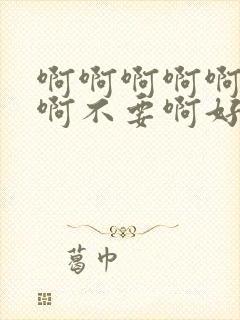 啊啊啊啊啊
啊不要啊好
葛巾